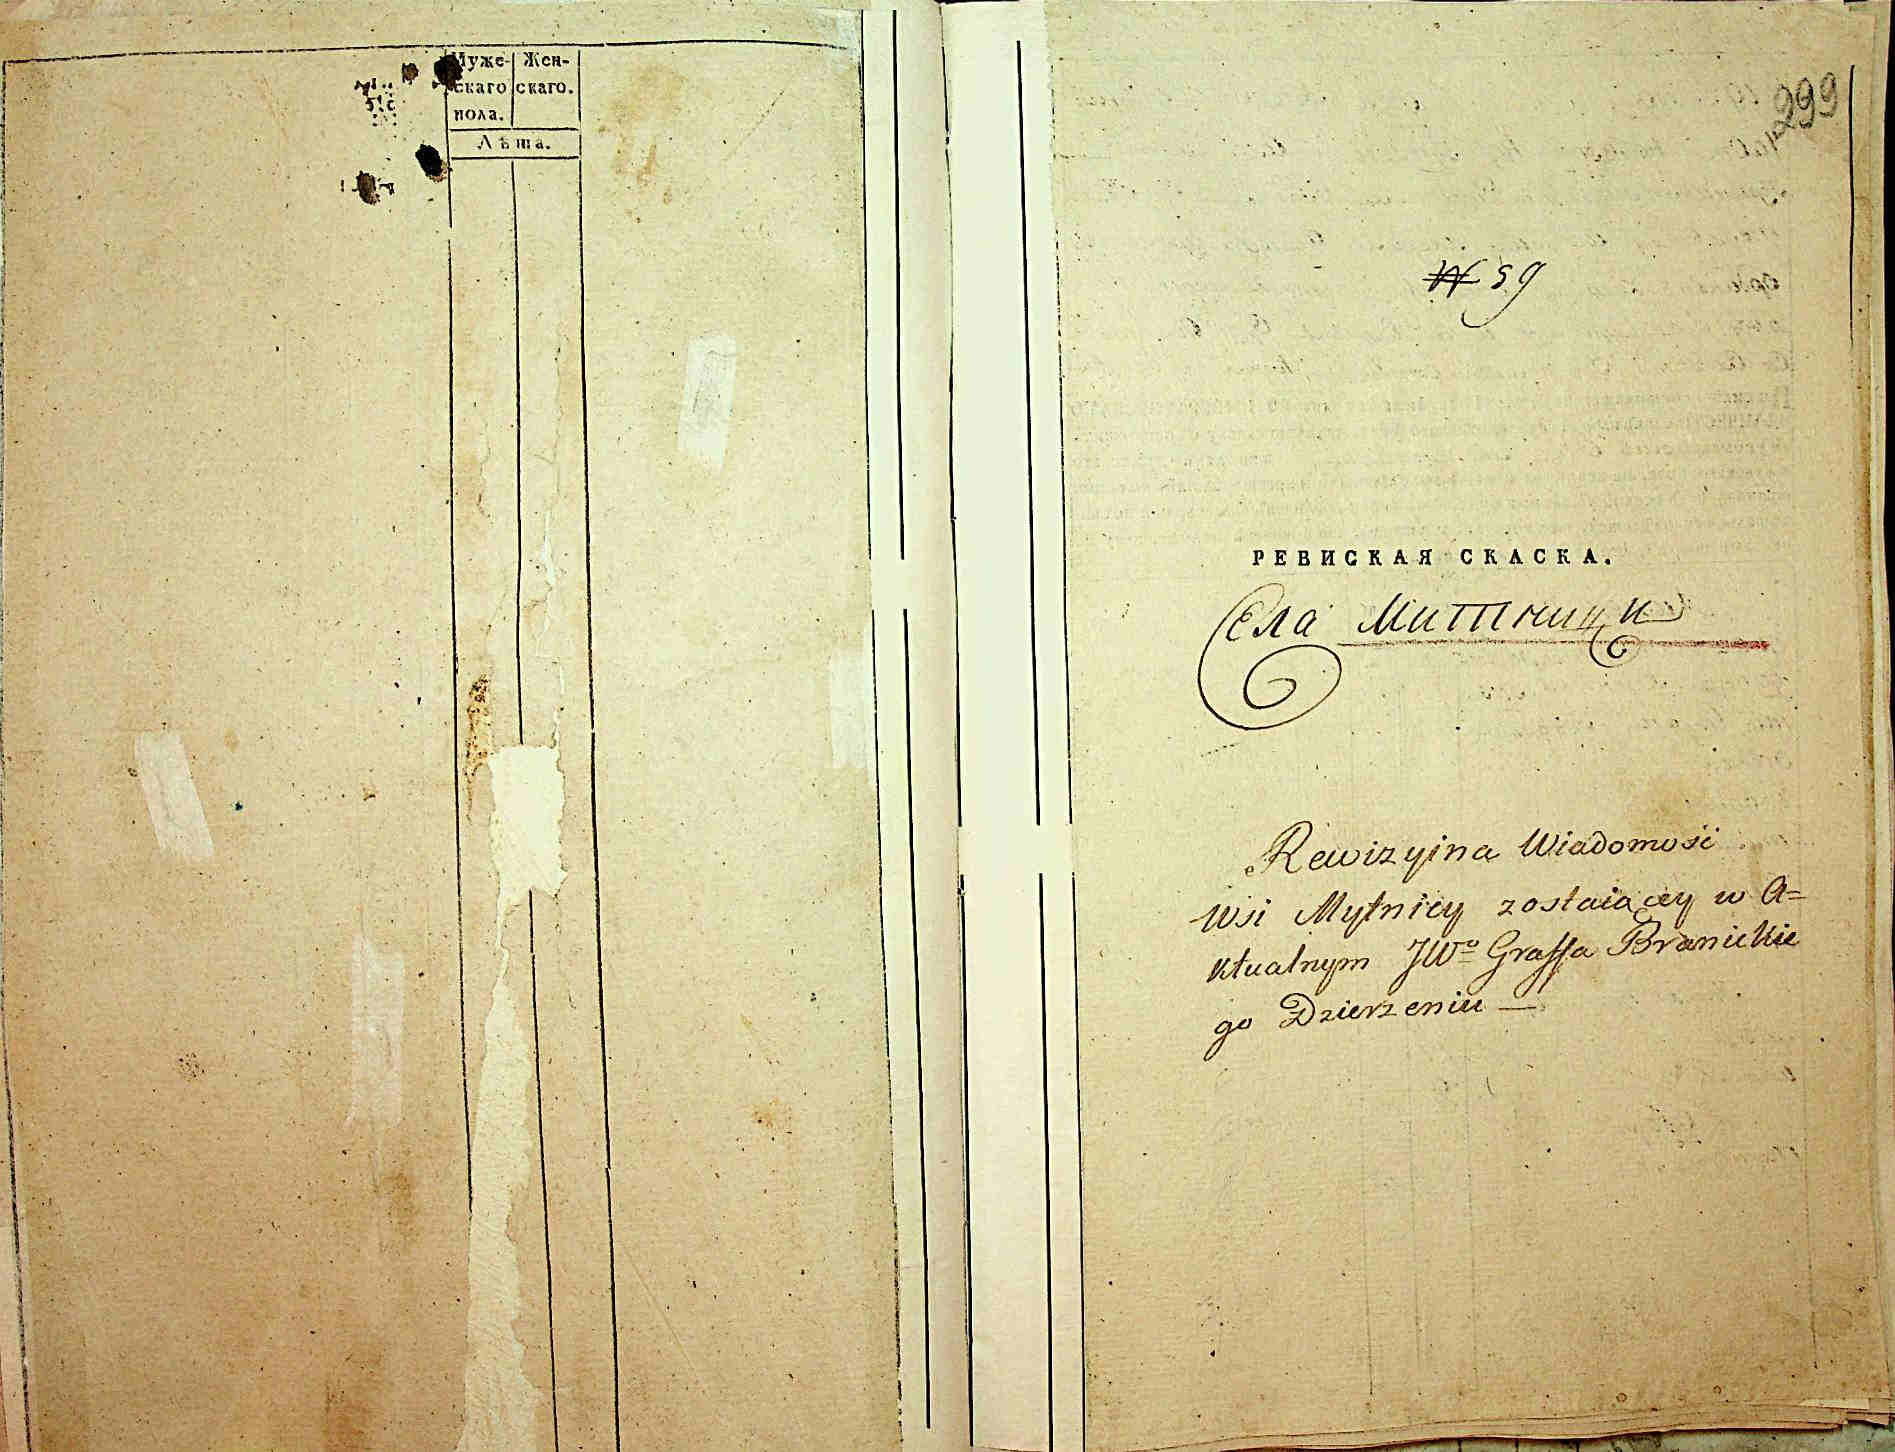 Муже- Жен-
скаго скаго.
пола.
Лѣта.
299
№ 59
РЕВИСКАЯ СКАСКА.
Села Митници
Rewizyina Wiadomość
Wsi Mytnicy zostaiącey w A=
ktualnym JWo Graffa Branickie
go Dzierzeniu —